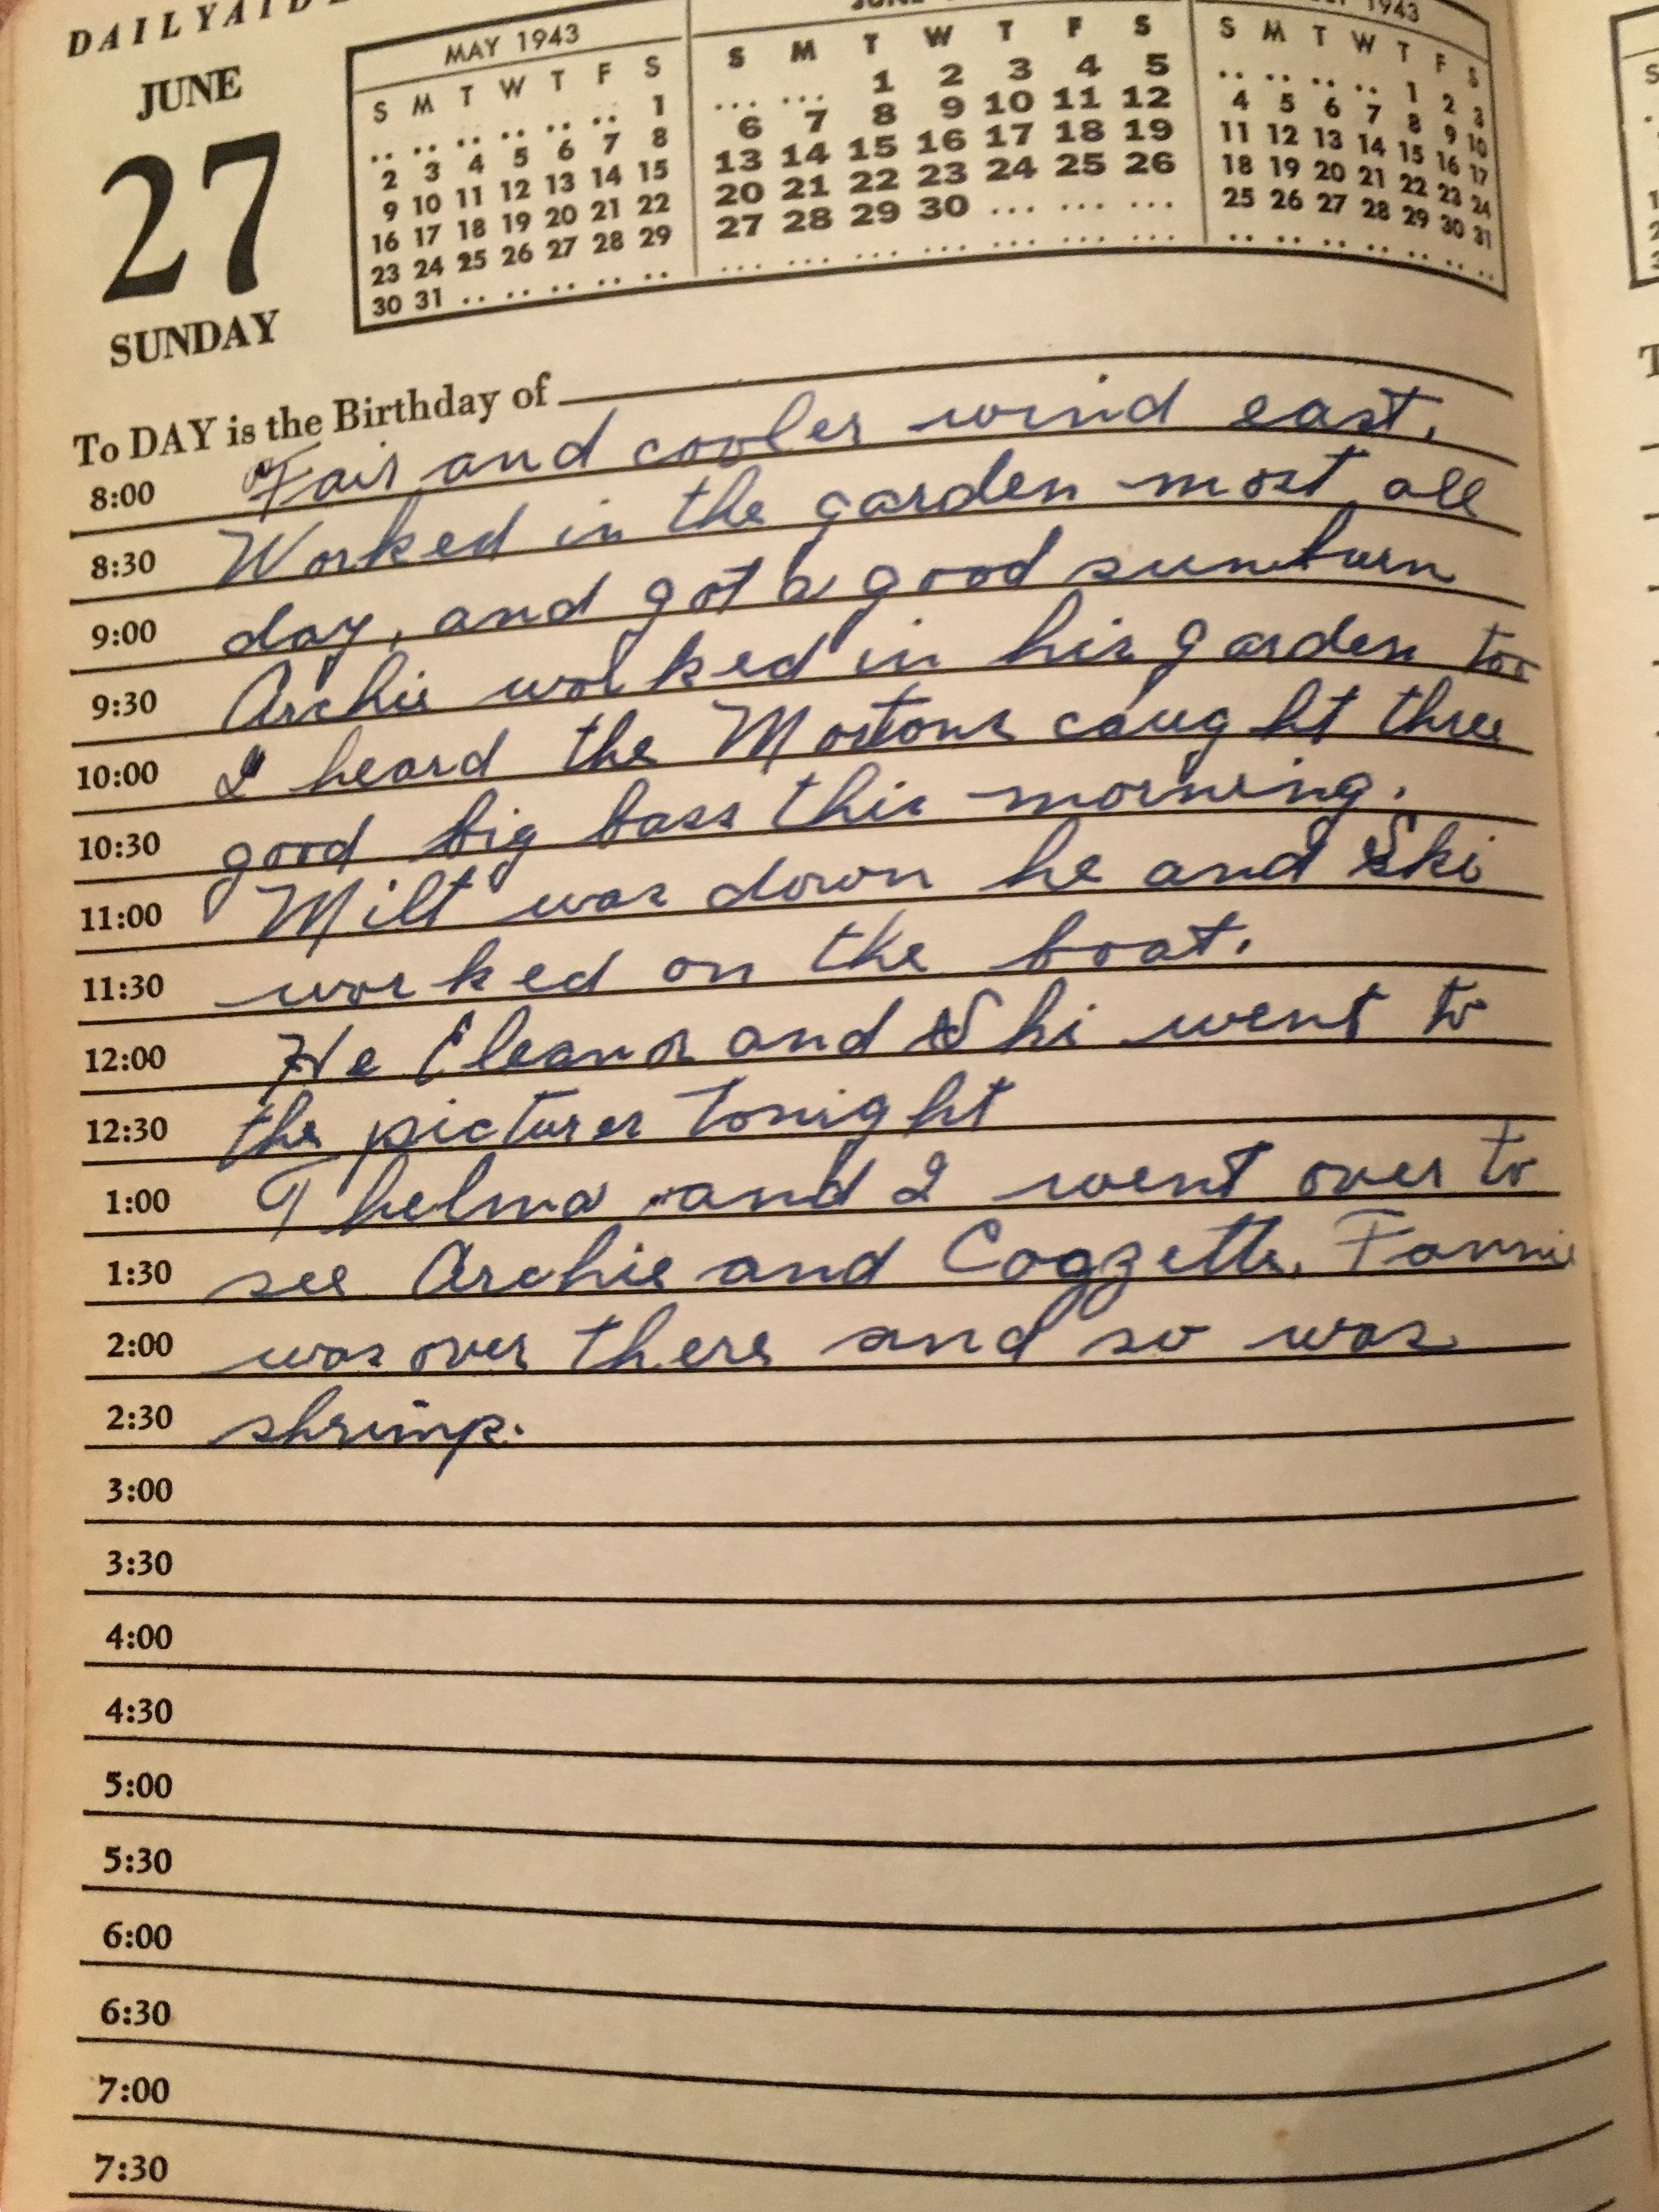 DAILYAID
JUNE
27
SUNDAY
MAY 1943
S M T W T F S
.. .. .. .. .. .. 1
2 3 4 5 6 7 8
9 10 11 12 13 14 15
16 17 18 19 20 21 22
23 24 25 26 27 28 29
30 31 .. .. .. .. ..
JUNE
S M T W T F S
... ... 1 2 3 4 5
6 7 8 9 10 11 12
13 14 15 16 17 18 19
20 21 22 23 24 25 26
27 28 29 30 ... ... ...
... ... ... ... ... ... ...
1943
S M T W T F S
.. .. .. .. 1 2 3
4 5 6 7 8 9 10
11 12 13 14 15 16 17
18 19 20 21 22 23 24
25 26 27 28 29 30 31
.. .. .. .. .. .. ..
To DAY is the Birthday of
8:00 Fair and cooler wind east.
8:30 Worked in the garden most all
9:00 day, and got a good sunburn
9:30 Archie worked in his garden too
10:00 I heard the Mortons caught three
10:30 good big bass this morning.
11:00 Milt was down he and Ski
11:30 worked on the boat.
12:00 He Eleanor and Ski went to
12:30 the pictures tonight
1:00 Thelma and I went over to
1:30 see Archie and Cogzette. Fannie
2:00 was over there and so was
2:30 shrimp.
3:00
3:30
4:00
4:30
5:00
5:30
6:00
6:30
7:00
7:30